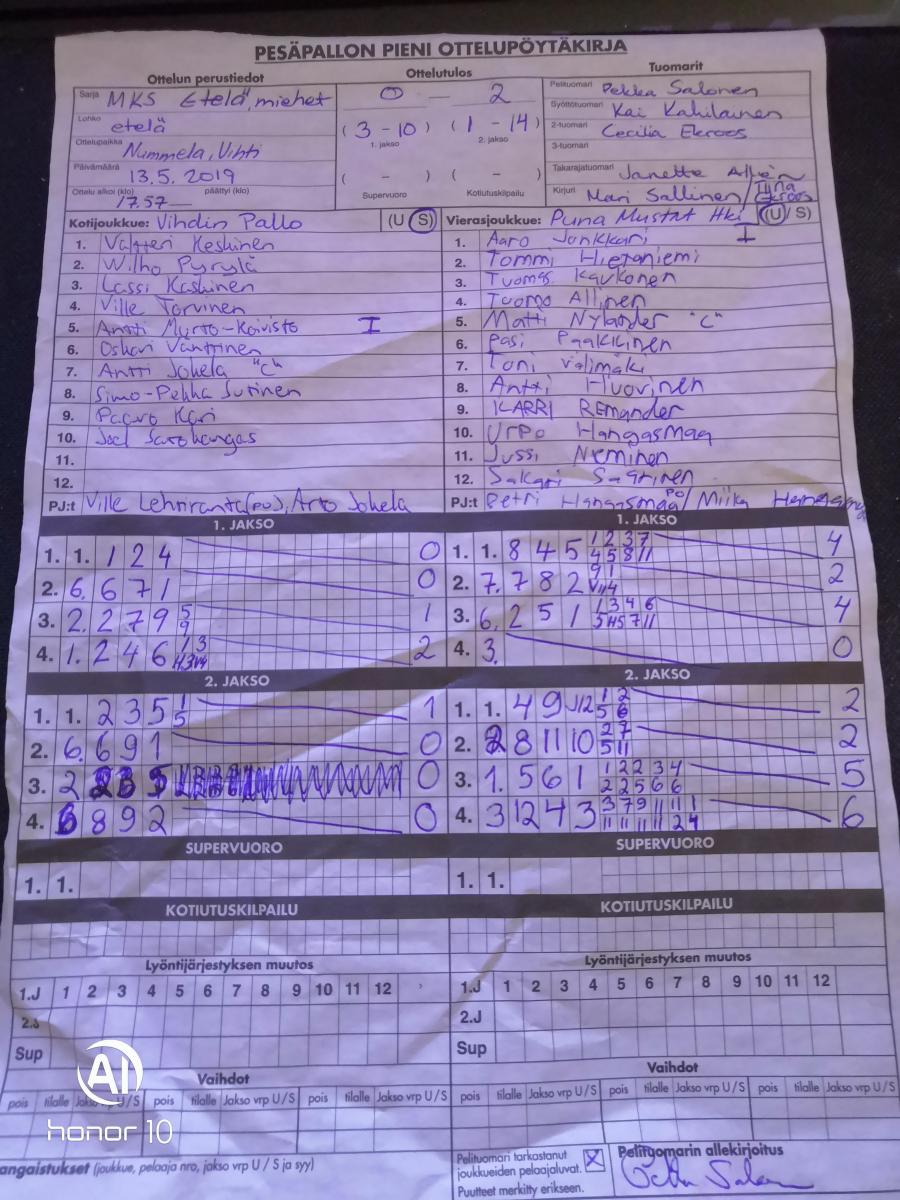 PESÄPALLON PIENI OTTELUPÖYTÄKIRJA
Ottelun perustiedot
Ottelutulos
Tuomarit
Sarja MKS Etelä, miehet
Lohko etelä
Ottelupaikka Nummela, Vihti
Päivämäärä 13.5. 2019
Ottelu alkoi (klo) 17.57 päättyi (klo) —
0 — 2
(3 - 10) (1 - 14)
1. jakso 2. jakso
( - ) ( - )
Supervuoro Kotiutuskilpailu
Pelituomari Pekka Salonen
Syöttötuomari Kai Kahilainen
2-tuomari Cecilia Ekroos
3-tuomari
Takarajatuomari Janette
Kirjuri Mari Sallinen / Tiina Ekroos
Kotijoukkue: Vihdin Pallo (U S)
1. Valtteri Keskinen
2. Wilho Pyrylä
3. Lassi Koskinen
4. Ville Torvinen
5. Antti Murto-Koivisto I
6. Oskari Vänttinen
7. Antti Jokela "C"
8. Simo-Pekka Sutinen
9. Paavo Kari
10. Joel
11.
12.
PJ:t Ville Lehtiranta (PJ), Arto Jokela
Vierasjoukkue: Puna Mustat Hki (U / S)
1. Aaro Jonkkari I
2. Tommi Hietaniemi
3. Tuomas Kaukonen
4. Tuomo Allinen
5. Matti Nylander "C"
6. Pasi Paakkinen
7. Toni Välimäki
8. Antti Huovinen
9. KARRI REmander
10. Urpo Hangasmaa
11. Jussi Nieminen
12. Sakari Saarinen
PJ:t Petri Hangasmaa PJ / Miika
1. JAKSO
1. 1. 1 2 4 0
2. 6. 6 7 1 0
3. 2. 2 7 9 5 9 1
4. 1. 2 4 6 1 3 2
1. JAKSO
1. 1. 8 4 5 1 2 3 7 4 5 8 11 4
2. 7. 7 8 2 9 1 2
3. 6. 2 5 1 1 3 4 6 4
4. 3. 0
2. JAKSO
1. 1. 2 3 5 1 5 1
2. 6. 6 9 1 0
3. 2 0
4. 6 8 9 2 0
2. JAKSO
1. 1. 4 9 12 1 2 5 6 2
2. 2 8 11 10 2 7 5 11 2
3. 1. 5 6 1 1 2 2 3 4 2 2 5 6 6 5
4. 3 12 4 3 3 7 9 11 11 1 11 11 11 11 2 4 6
SUPERVUORO
1. 1.
SUPERVUORO
1. 1.
KOTIUTUSKILPAILU
KOTIUTUSKILPAILU
Lyöntijärjestyksen muutos
1.J 1 2 3 4 5 6 7 8 9 10 11 12
2.J
Sup
Lyöntijärjestyksen muutos
1.J 1 2 3 4 5 6 7 8 9 10 11 12
2.J
Sup
Vaihdot
pois tilalle Jakso vrp U / S pois tilalle Jakso vrp U / S pois tilalle Jakso vrp U / S
Vaihdot
pois tilalle Jakso vrp U / S pois tilalle Jakso vrp U / S pois tilalle Jakso vrp U / S
AI
honor 10
angaistukset (joukkue, pelaaja nro, jakso vrp U / S ja syy)
Pelituomari tarkastanut
joukkueiden pelaajaluvat. X
Puutteet merkitty erikseen.
Pelituomarin allekirjoitus